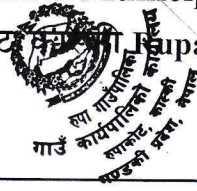 Rupa
रुपा गाउँपालिका
गाउँ कार्यपालिकाको कार्यालय
रुपाकोट, कास्की
गण्डकी प्रदेश, नेपाल